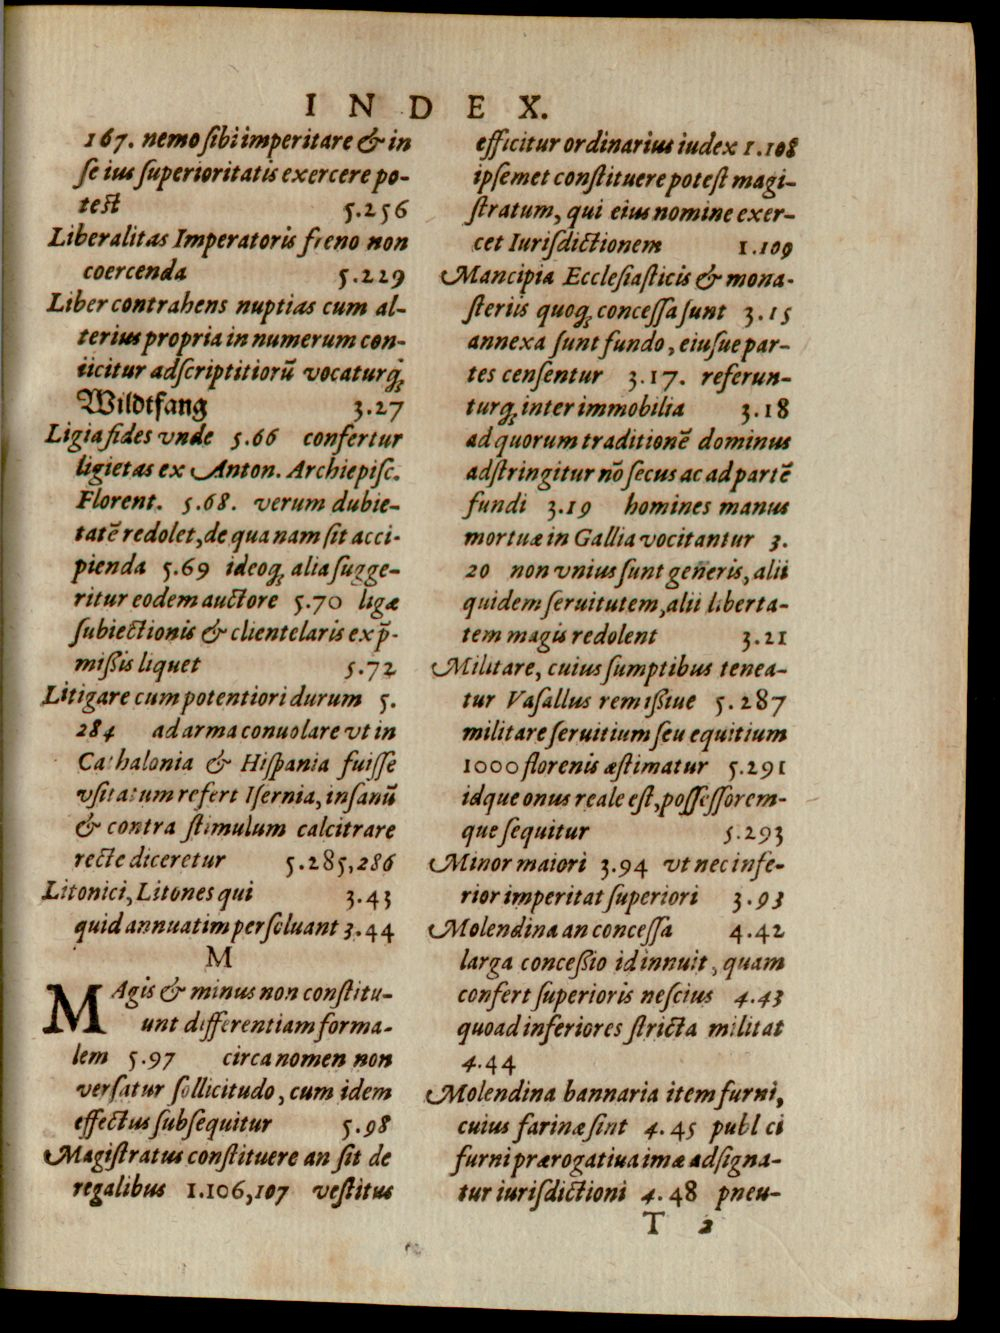 INDEX.
167. nemo sibi imperitare & in
se ius superioritatis exercere po-
test 5.256
Liberalitas Imperatoris freno non
coercenda 5.229
Liber contrahens nuptias cum al-
terius propria in numerum con-
iicitur adscriptitiorũ vocaturq́;
Wildtfang 3.27
Ligia fides vnde 5.66 confertur
ligietas ex Anton. Archiepisc.
Florent. 5.68. verum dubie-
tatẽ redolet, de qua nam sit acci-
pienda 5.69 ideoq; alia sugge-
ritur eodem auctore 5.70 ligæ
subiectionis & clientelaris ex p̃-
mißis liquet 5.72
Litigare cum potentiori durum 5.
284 ad arma conuolare vt in
Cathalonia & Hispania fuisse
vsitatum refert Isernia, insanũ
& contra stimulum calcitrare
recte diceretur 5.285,286
Litonici, Litones qui 3.43
quid annuatim persoluant 3.44
M
MAgis & minus non constitu-
unt differentiam forma-
lem 5.97 circa nomen non
versatur sollicitudo, cum idem
effectus subsequitur 5.98
Magistratus constituere an sit de
regalibus 1.106,107 vestitus
efficitur ordinarius iudex 1.108
ipsemet constituere potest magi-
stratum, qui eius nomine exer-
cet Iurisdictionem 1.109
Mancipia Ecclesiasticis & mona-
steriis quoq; concessa sunt 3.15
annexa sunt fundo, eiusue par-
tes censentur 3.17. referun-
turq; inter immobilia 3.18
ad quorum traditionẽ dominus
adstringitur nõ secus ac ad partẽ
fundi 3.19 homines manus
mortuæ in Gallia vocitantur 3.
20 non vnius sunt generis, alii
quidem seruitutem, alii liberta-
tem magis redolent 3.21
Militare, cuius sumptibus tenea-
tur Vasallus remißiue 5.287
militare seruitium seu equitium
1000 florenis æstimatur 5.291
idque onus reale est, possessorem-
que sequitur 5.293
Minor maiori 3.94 vt nec infe-
rior imperitat superiori 3.93
Molendina an concessa 4.42
larga conceßio id innuit, quam
confert superioris nescius 4.43
quoad inferiores stricta militat
4.44
Molendina bannaria item furni,
cuius farinæ sint 4.45 publ ci
furni prærogatiua imæ adsigna-
tur iurisdictioni 4.48 pneu-
T 2